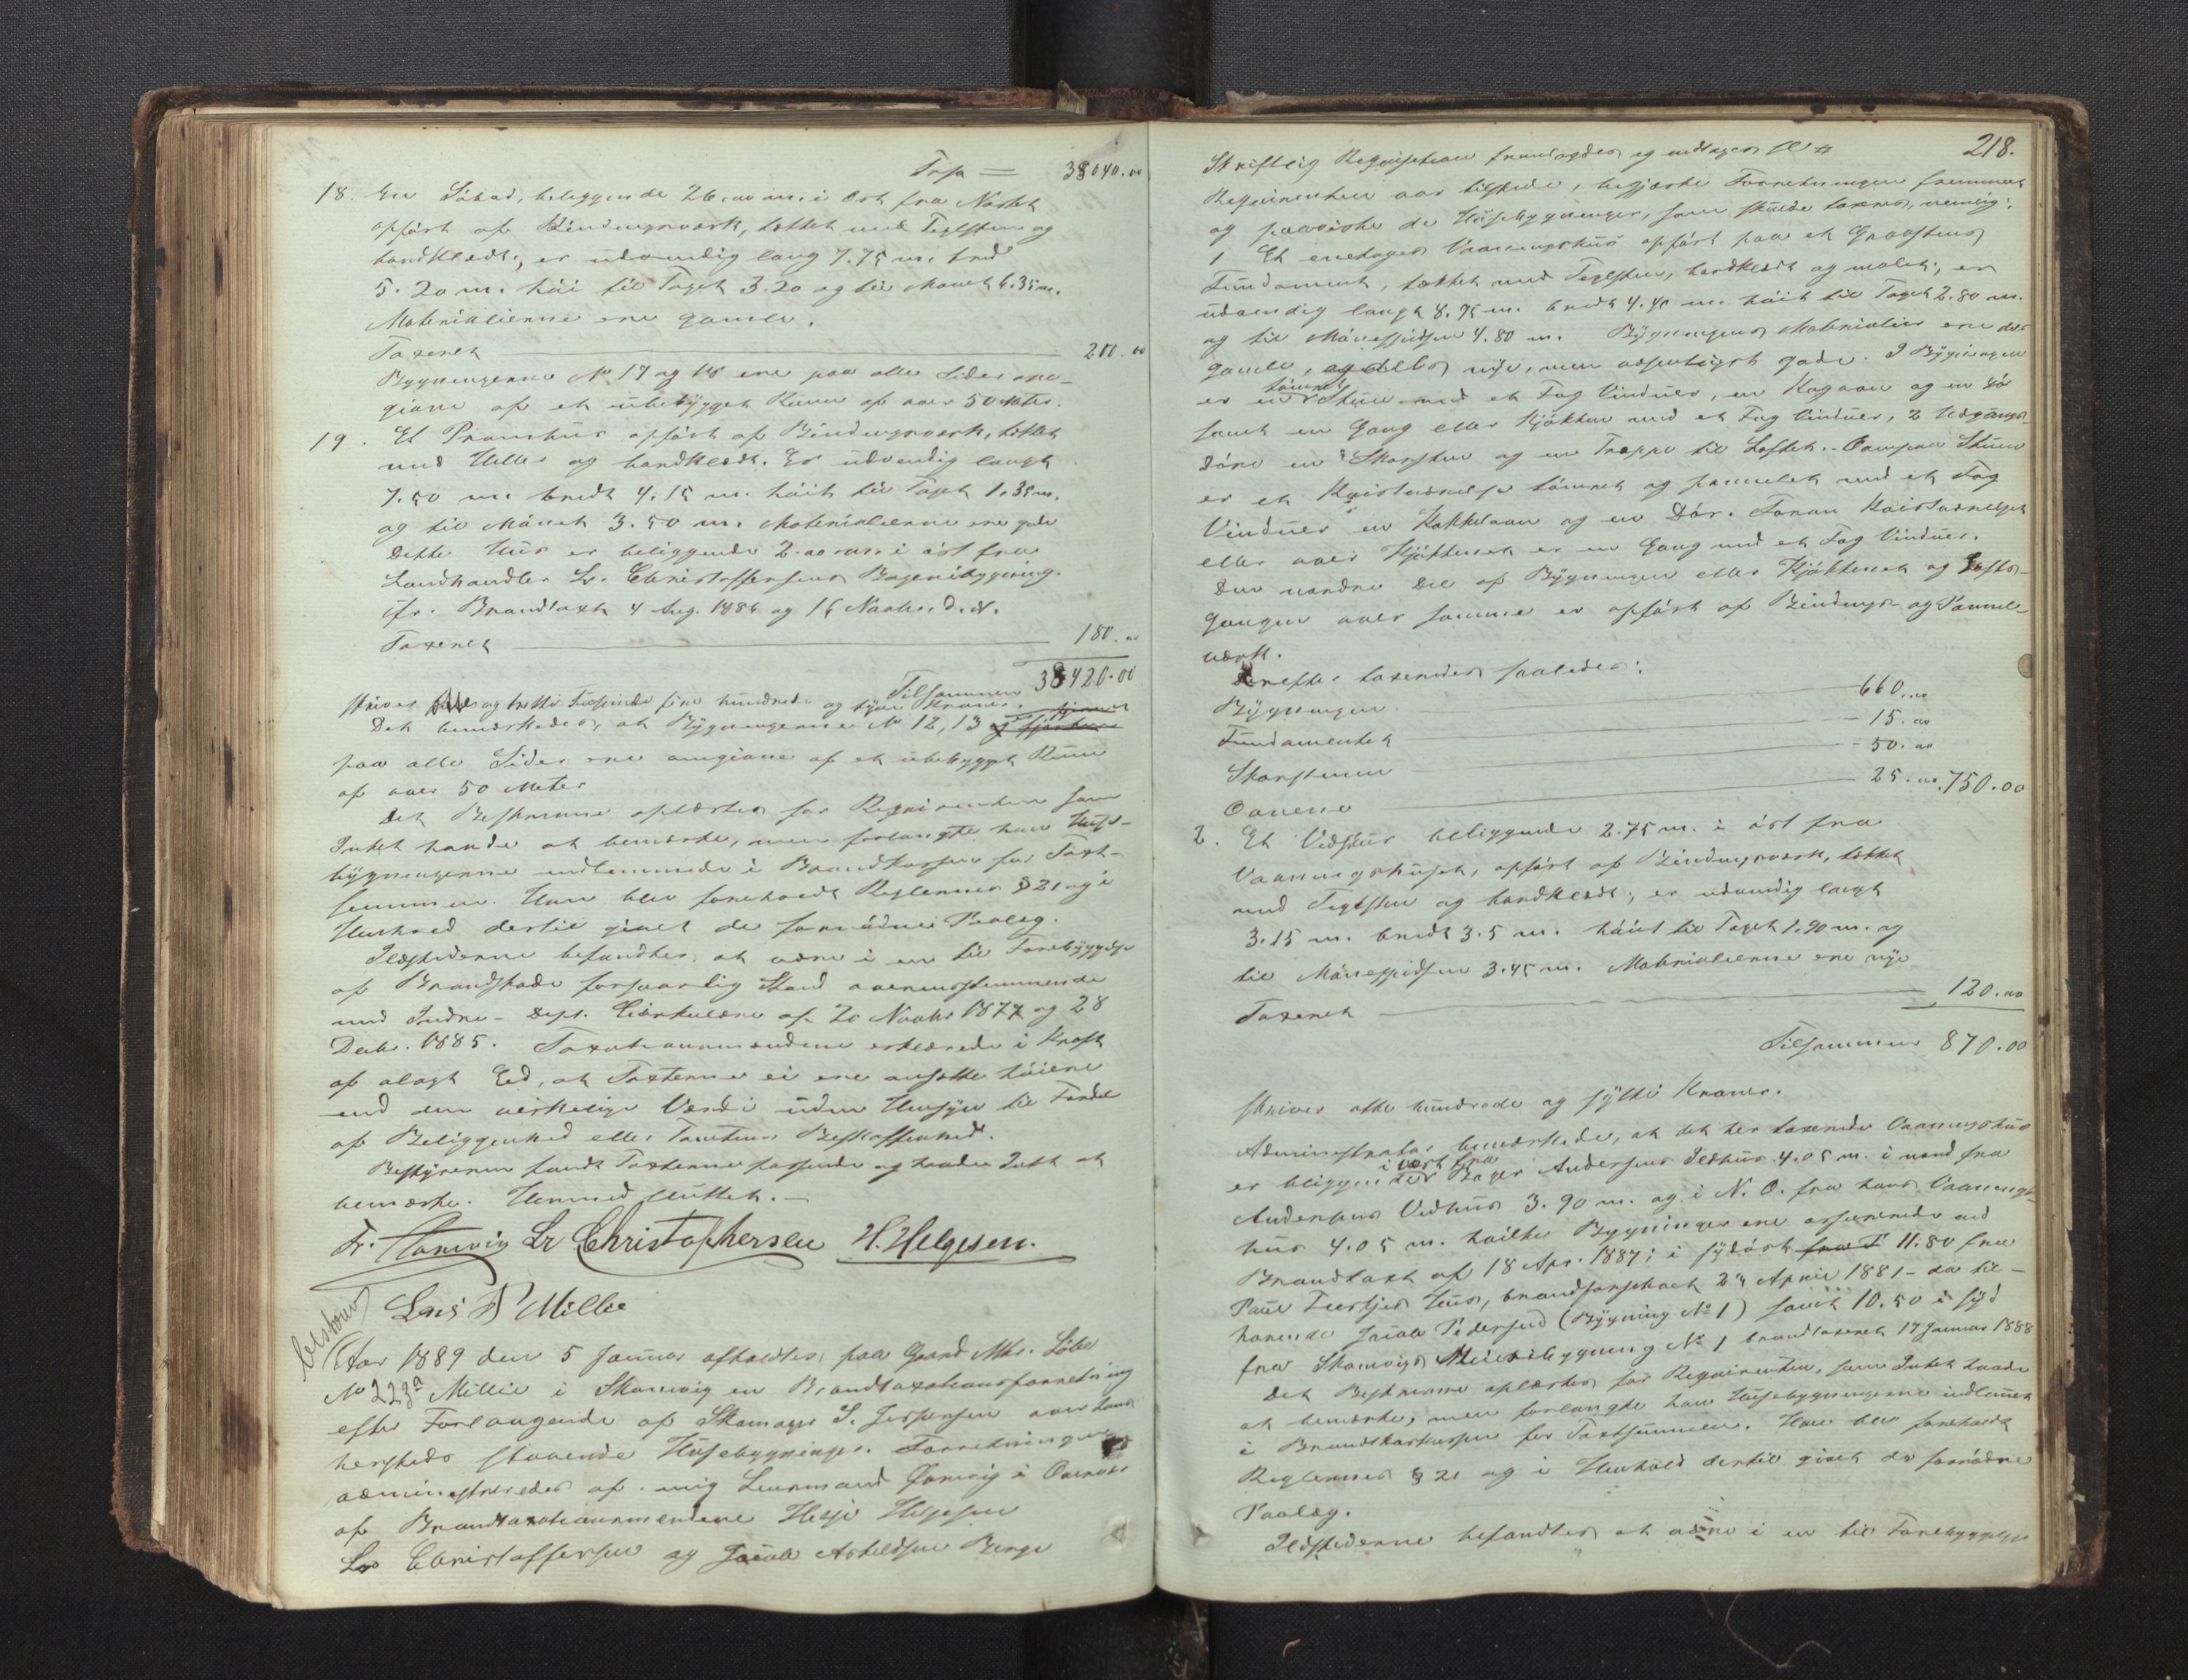 Trsp = 38040.00
18. En Söbod, beliggende 26.00 m. i Øst fra Nøstet
opført af Bindingsværk, tækket med Teglsten og
bordklædt, er udvendig lang 7.75 m. bred
5.20 m. høi til Taget 3.20 og til Mønet 6.35 m.
Materialierne ere gamle.
Taxeret 200.00
Bygningerne No 17 og 18 ere paa alle Sider om-
givne af et ubebygget Rum af over 50 Meter.
19. Et Pramhus opført af Bindingsværk, tækket
med Heller og bordklædt. Er udvendig langt
7.50 m. bredt 4.15 m. høit til Taget 1.35 m.
og til Mønet 3.50 m. Materialierne ere gode
Dette Hus er beliggende 2.00 m. i øst fra
Landhandler Lr. Christoffersens Bageribygning.
cfr. Brandtaxt 4 Aug. 1886 og 16 Novbr. d. A.
Taxeret 180.00
Tilsammen 38420.00
skriver otte og tretti Tusinde fire hundrede og tyve Kroner.
Det bemærkedes, at Bygningerne No 12, 13
paa alle Sider ere omgivne af et ubebygget Rum
af over 50 Meter
Det Beskrevne oplæstes for Rekvirenten som
Intet havde at bemærke, men forlangte han Huse-
bygningerne indlemmede i Brandkassen for Taxt-
summen. Han blev foreholdt Reglernes § 21 og i
Henhold dertil givet de fornødne Paalæg.
Ildstederne befandtes at være i en til Forebyggelse
af Brandskade forsvarlig Stand overensstemmende
med Indre-Dept. Cirkulære af 20 Novbr 1877 og 28
Decbr. 1885. Taxationsmændene erklærede i Kraft
af aflagt Eed, at Taxterne ei ere ansatte høiere
end den virkelige Værdi uden Hensyn til Fordel
af Beliggenhed eller Tomtens Beskaffenhed.
Bestyreren fandt Taxterne passende og havde Intet at
bemærke. Hermed sluttet.
Lr Christophersen H. Helgesen.
Lars P Millie
Aar 1889 den 5 Januar afholdtes paa Gaard Mtr. Løbe
No 223a Millie i Skonevig en Brandtaxationsforretning
efter Forlangende af Skomager S. Jespersen over hans
hersteds staaende Husebygninger. Forretningen
administreredes af mig Lensmand i Overvær
af Brandtaxationsmændene Helje Heljesen
Lr Christoffersen og Jacob Askildsen Berge
218.
Skriftlig Reqvisition fremlagdes og indtages
Reqvirenten var tilstede, begjærte Forretningen fremmet
og paaviste de Husebygninger, som skulde taxeres, nemlig:
1 Et enetages Vaaningshus opført paa et Graastens
Fundament, tækket med Teglsten, bordklædt og malet, er
udvendig langt 8.95 m. bredt 4.40 m. høit til Taget 2.80 m.
og til Mønespidsen 4.80 m. Bygningens Materialier ere dels
gamle, og dels nye, men væsentligst gode. I Bygningen
er en tømret Stue med et Fag Vinduer, en Kogovn og en Dør
samt en Gang eller Kjøkken med et Fag Vinduer, 2 Udgangs-
døre en Skorsten og en Trappe til Loftet. Ovenpaa Stuen
er et Kvistværelse tømret og panelet med et Fag
Vinduer en Kakkelovn og en Dør. Foran Kvistværelset
eller over Kjøkkenet er en Gang med et Fag Vinduer.
Den nordre Del af Bygningen eller Kjøkkenet og Lofts-
gangen over samme er opført af Bindings- og Panel-
værk.
Derefter taxeredes saaledes:
Bygningen 660.00
Fundamentet 15.00
Skorstenen 50.00
Ovnene 25.00. 750.00
2. Et Vedskur beliggende 2.75 m. i øst fra
Vaaningshuset, opført af Bindingsværk, tækket
med Teglsten og bordklædt, er udvendig langt
3.15 m. bredt 3.5 m. høit til Taget 1.90 m. og
til Mønespidsen 3.45 m. Materialierne ere nye
Taxeret 120.00
Tilsammen 870.00
skriver otte hundrede og sytti Kroner.
Administrator bemærkede, at det her taxerede Vaaningshus
er beliggende i vest fra Bager Andersens Ildhus 4.05 m. i nord fra
Andersens Vedhus 3.90 m. og i N. O. fra hans Vaanings-
hus 4.05 m. hvilke Bygninger ere assurerede ved
Brandtaxt af 18 Apr. 1887; i sydøst fra P 11.80 fra
Paul Hus, brandforsikret 24 April 1881 - da til-
hørende Jacob Pedersen (Bygning No 1) samt 10.50 i syd
fra Skonevigs bygning No 1 brandtaxeret 17 Januar 1888
Det Beskrevne oplæstes for Reqvirenten, som Intet havde
at bemærke, men forlangte han Husebygningerne indlemmet
i Brandkassen for Taxtsummen. Han blev foreholdt
Reglernes § 21 og i Henhold dertil givet de fornødne
Paalæg.
Ildstederne befandtes at være i en til Forebyggelse